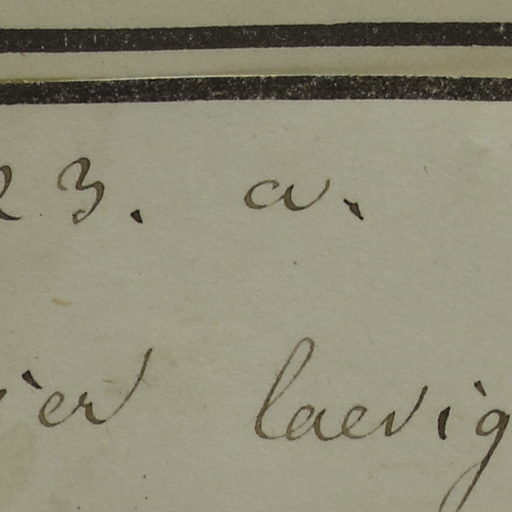 23. a.
ier laevig